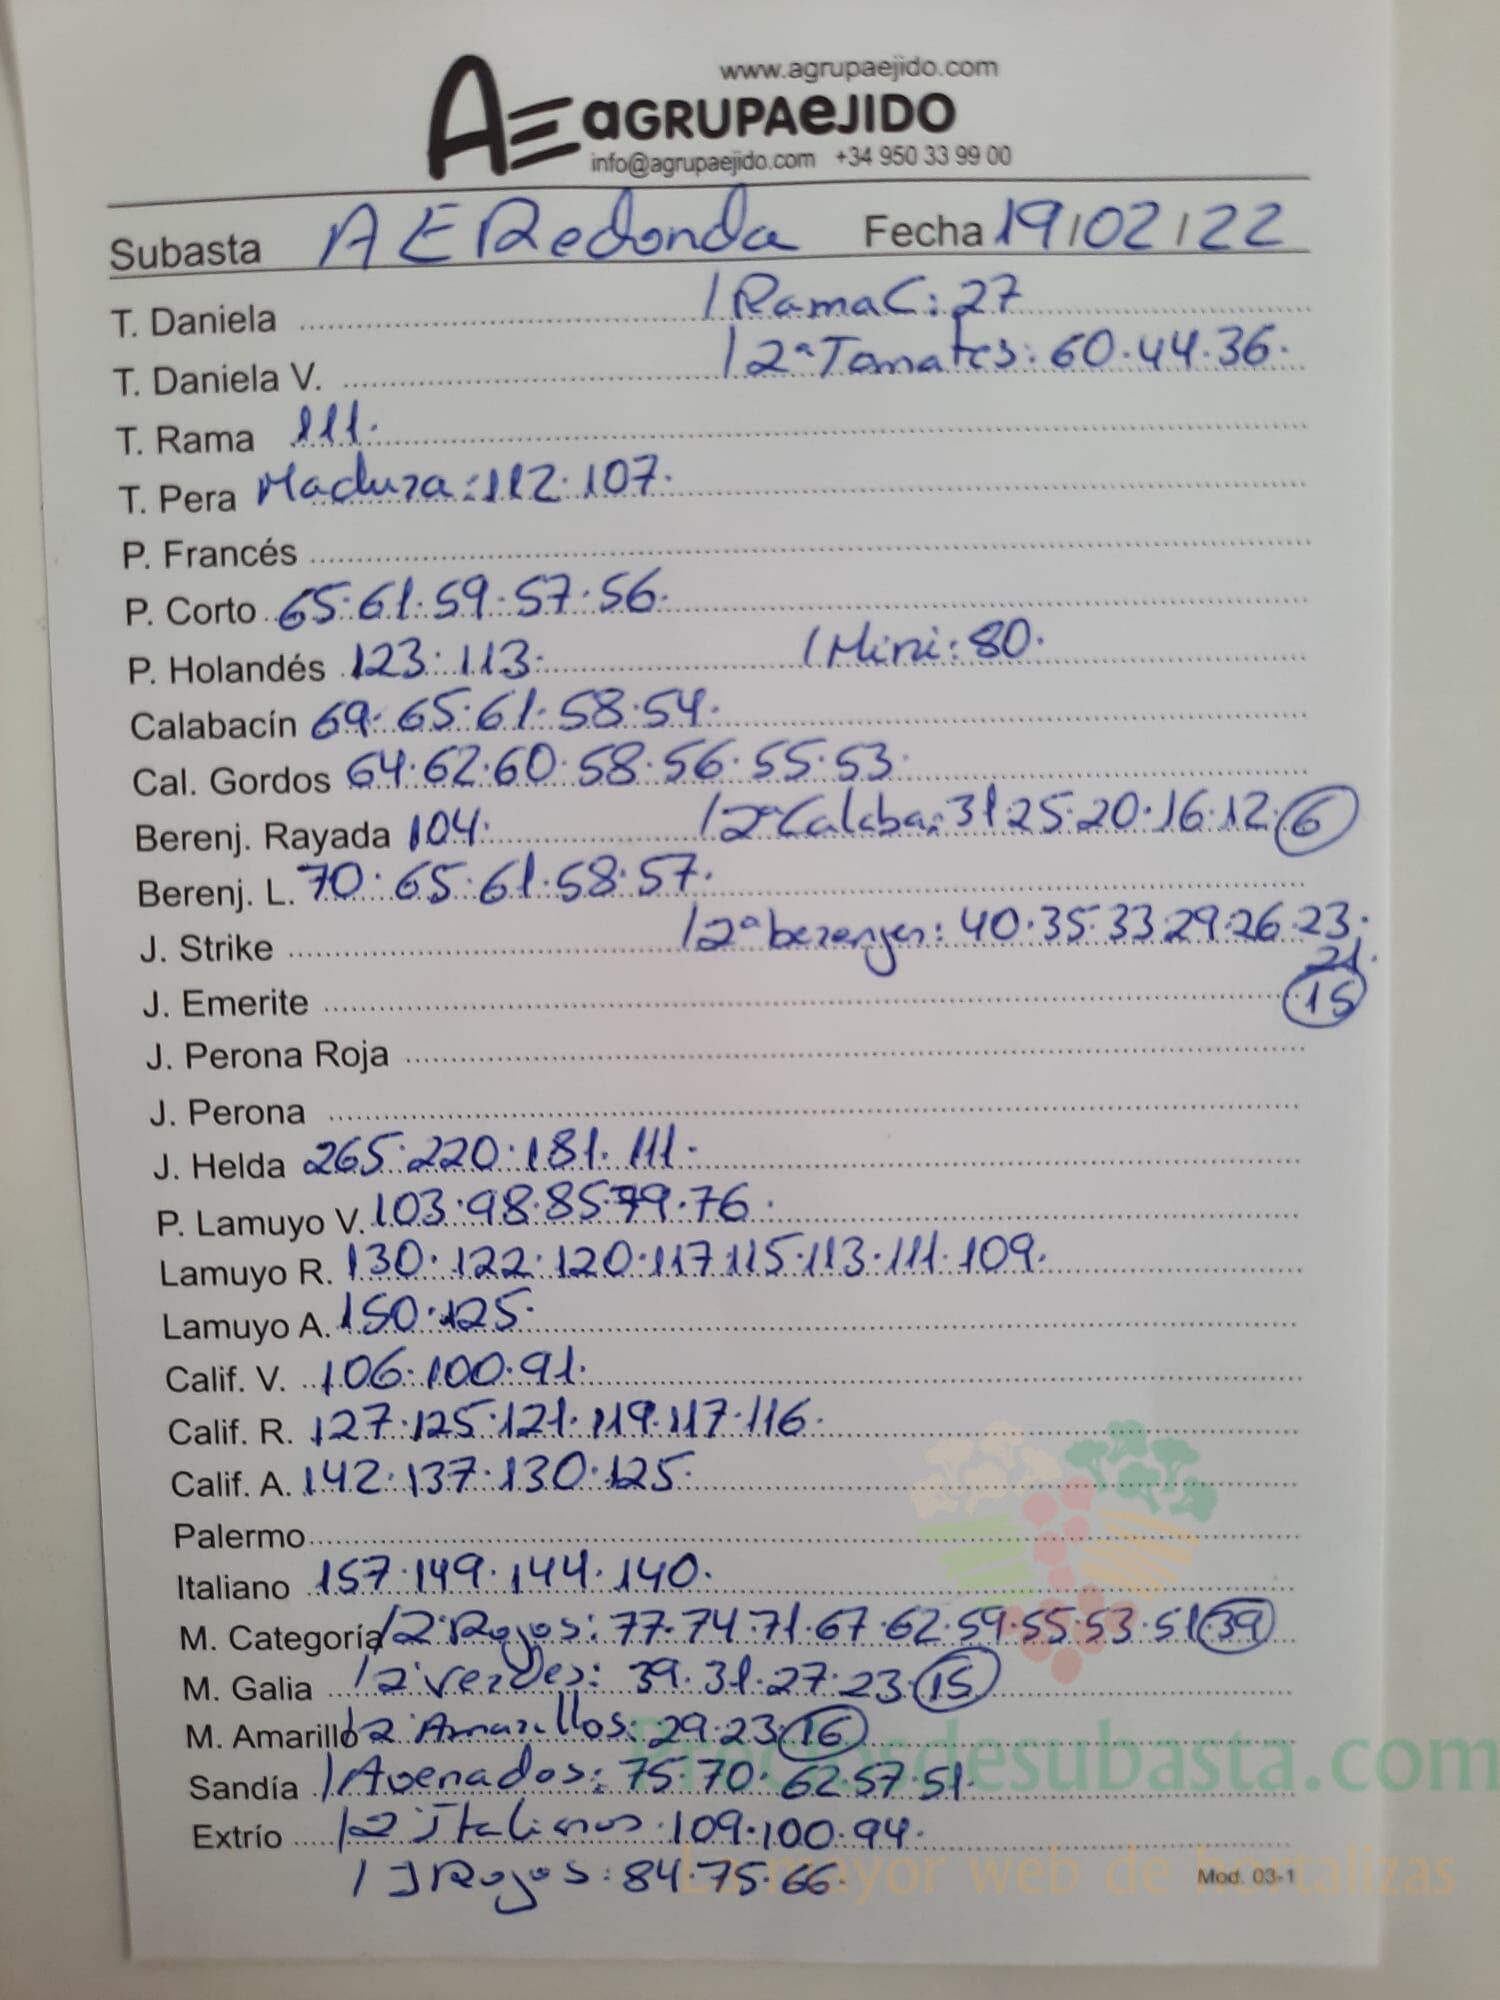 www.agrupaejido.com
AE aGRUPAeJIDO
info@agrupaejido.com +34 950 33 99 00
Subasta AERedonda Fecha 19/02/22
T. Daniela /RamaC: 27
T. Daniela V. /2ª Tomates: 60.44.36.
T. Rama 111.
T. Pera Madura: 112.107.
P. Francés
P. Corto 65.61.59.57.56.
P. Holandés 123.113. /Mini: 80.
Calabacín 69.65.61.58.54.
Cal. Gordos 64.62.60.58.56.55.53.
Berenj. Rayada 104. /2ª Calaba: 31.25.20.16.12.6
Berenj. L. 70.65.61.58.57.
J. Strike /2ª berenjes: 40.35.33.29.26.23.
21.
J. Emerite 15
J. Perona Roja
J. Perona
J. Helda 265.220.181.111.
P. Lamuyo V. 103.98.85.79.76.
Lamuyo R. 130.122.120.117.115.113.111.109.
Lamuyo A. 150.125.
Calif. V. 106.100.91.
Calif. R. 127.125.121.119.117.116.
Calif. A. 142.137.130.125.
Palermo
Italiano 157.149.144.140.
M. Categoría /2ª Rojos: 77.74.71.67.62.59.55.53.51.39
M. Galia /2ª Verdes: 39.31.27.23.15
M. Amarillo /2ª Amarillos: 29.23.16
Preciosdesubasta.com
Sandía /Asenados: 75.70.62.57.51.
Extrío /2ª Italianos.109.100.94.
/JRojos: 84.75.66.
La mayor web de hortalizas
Mod. 03-1